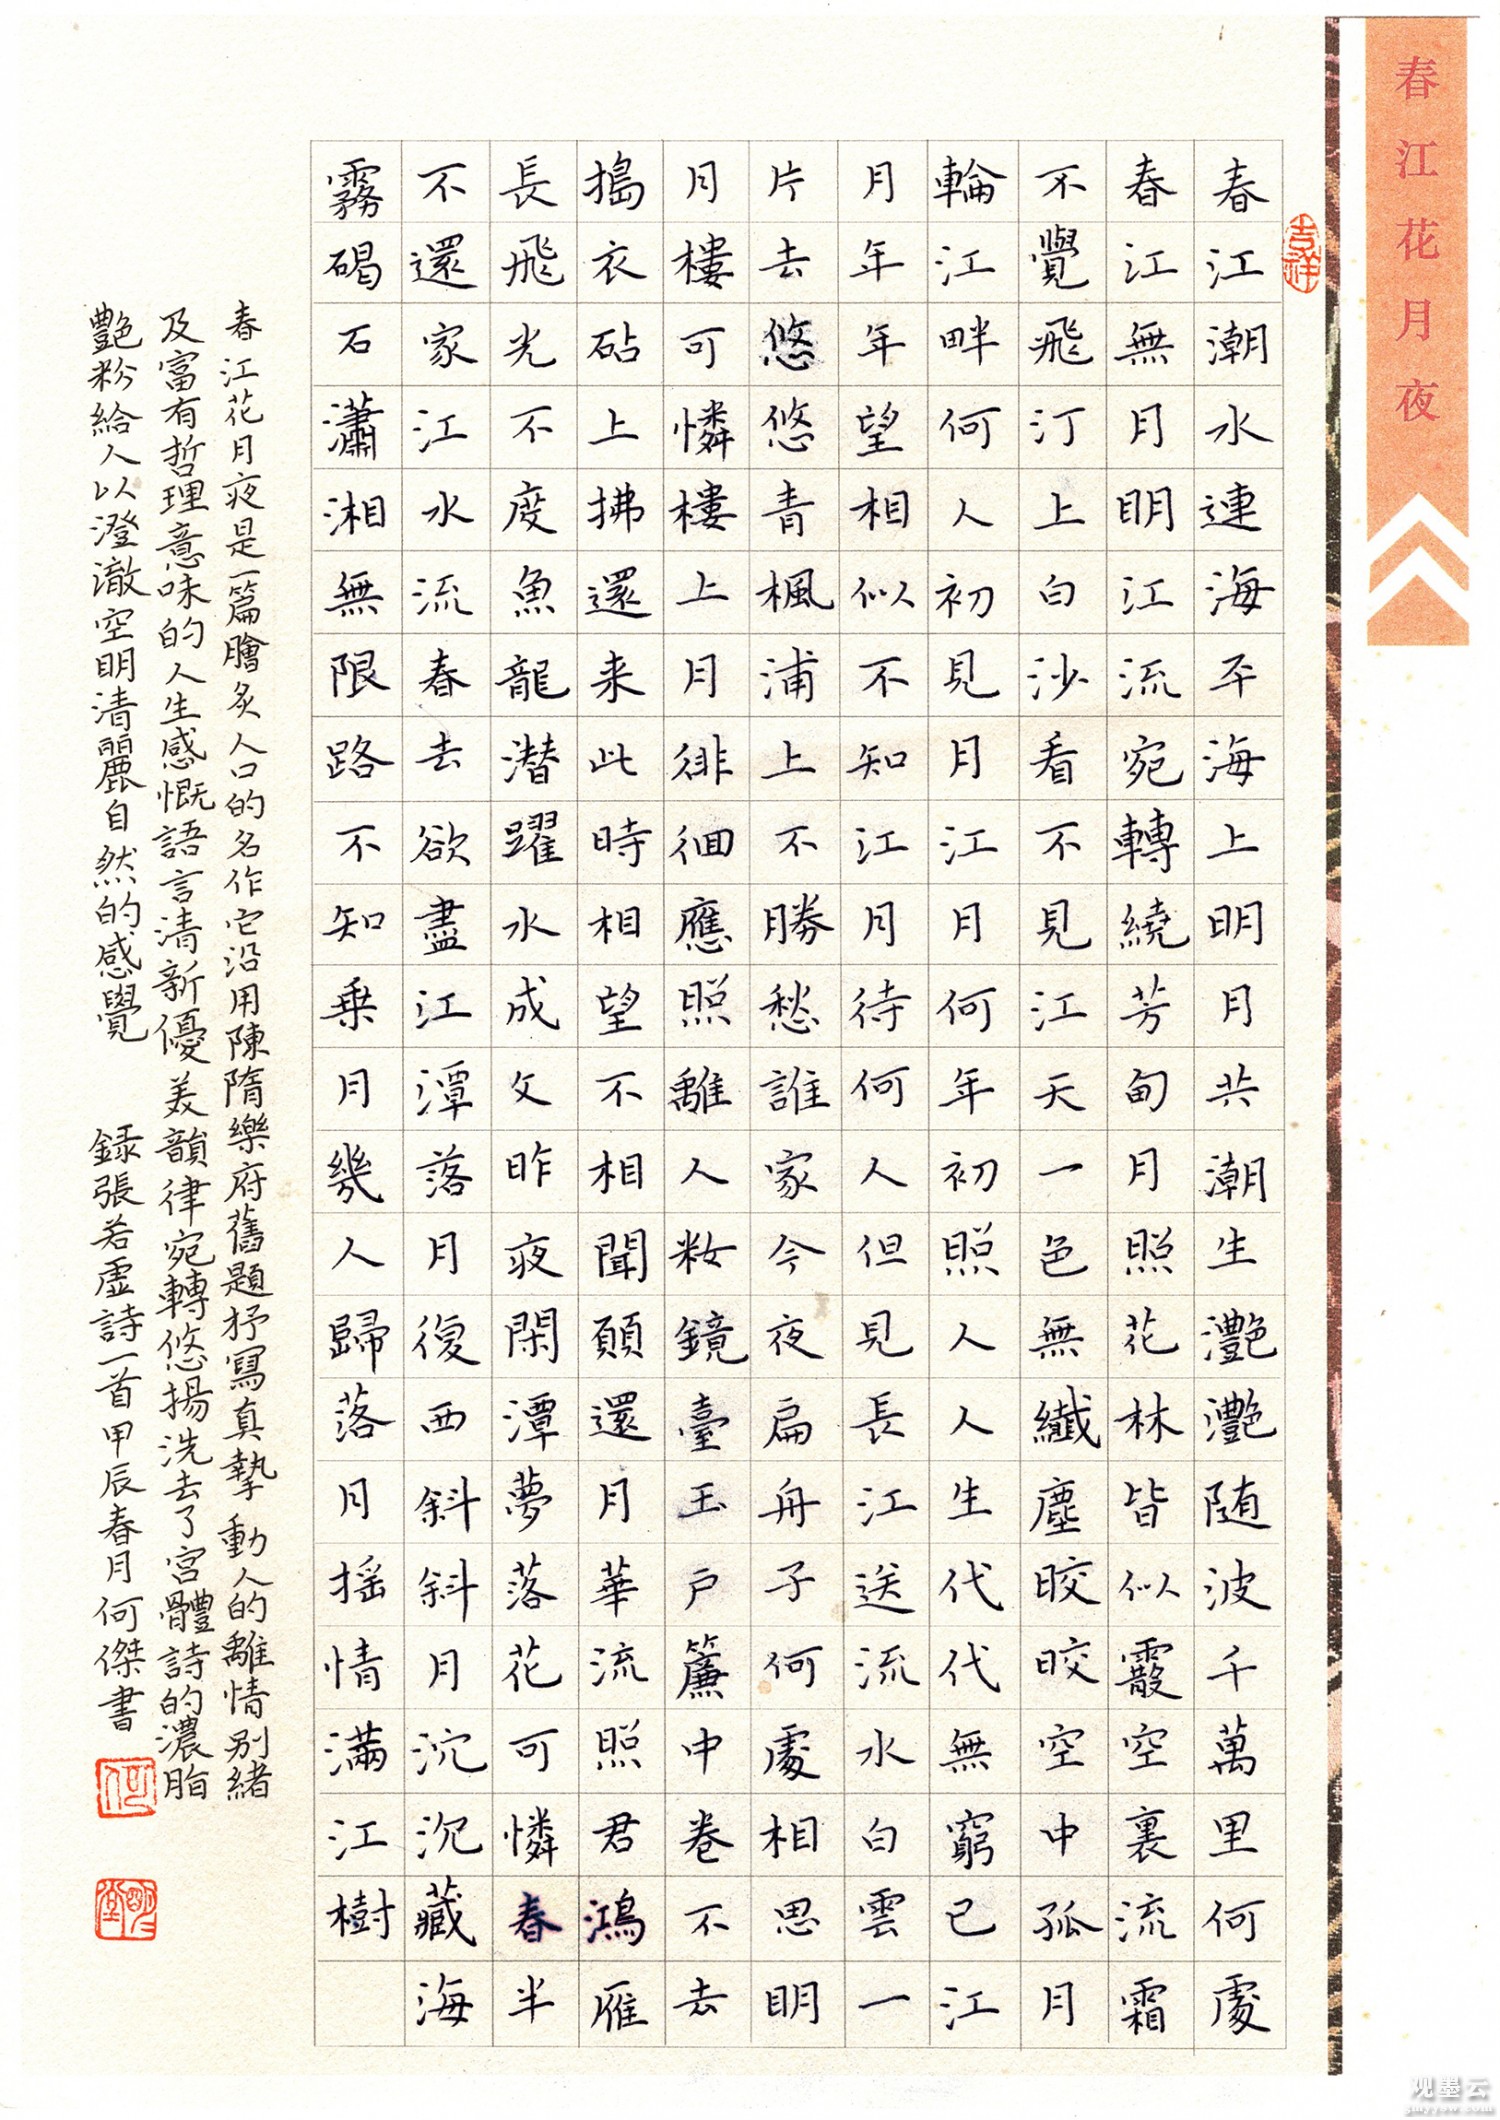 春江花月夜
吉祥
春江潮水連海平海上明月共潮生灔灔随波千萬里何處
春江無月明江流宛轉繞芳甸月照花林皆似霰空裏流霜
不覺飛汀上白沙看不見江天一色無纖塵皎皎空中孤月
輪江畔何人初見月江月何年初照人人生代代無窮已江
月年年望相似不知江月待何人但見長江送流水白雲一
片去悠悠青楓浦上不勝愁誰家今夜扁舟子何處相思明
月樓可憐樓上月徘徊應照離人籹鏡臺玉戶簾中卷不去
搗衣砧上拂還来此時相望不相聞願還月華流照君鴻雁
長飛光不度魚龍潜躍水成文昨夜閑潭夢落花可憐春半
不還家江水流春去欲盡江潭落月復西斜斜月沉沉藏海
霧碣石瀟湘無限路不知乗月幾人歸落月揺情滿江樹
春江花月夜是一篇膾炙人口的名作它沿用陳隋樂府舊題抒寫真摯動人的離情别緒
及富有哲理意味的人生感慨語言清新優美韻律宛轉悠揚洗去了宫體詩的濃脂
艷粉給人以澄澈空明清麗自然的感覺 録張若虚詩一首甲辰春月何傑書
何
观墨云